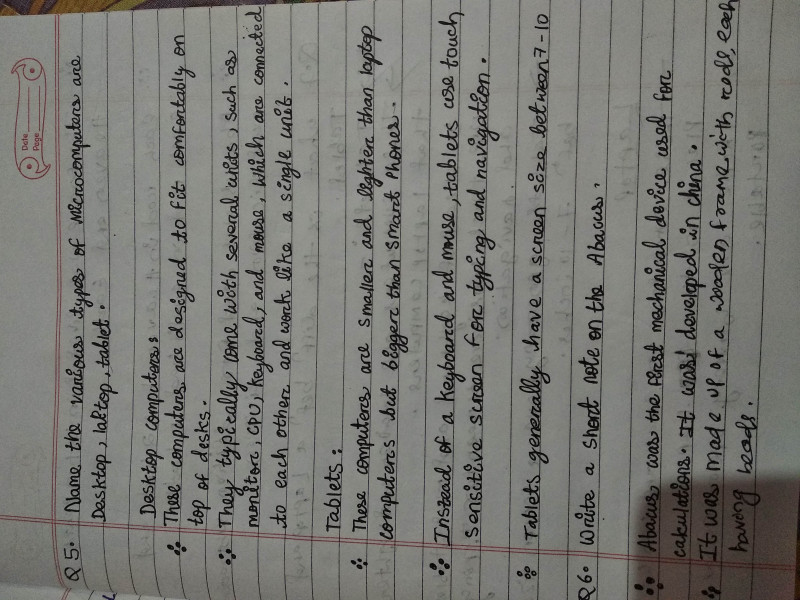 Date
Page
Q5. Name the various types of Microcomputers are
Desktop, laptop, tablet.
Desktop computers:
These computers are designed to fit comfortably on
top of desks.
They typically come with several units, such as
monitor, CPU, Keyboard, and mouse, which are connected
to each other and work like a single unit.
Tablets:
These computers are smaller and lighter than laptop
computers but bigger than smart Phones.
Instead of a Keyboard and mouse, tablets use touch
Sensitive screen for typing and navigation.
Tablets generally have a screen size between 7-10
Q6. Write a short note on the Abacus.
Abacus was the first mechanical device used for
calculations. It was developed in china.
It was made up of a wooden frame with rods, each
having beads.